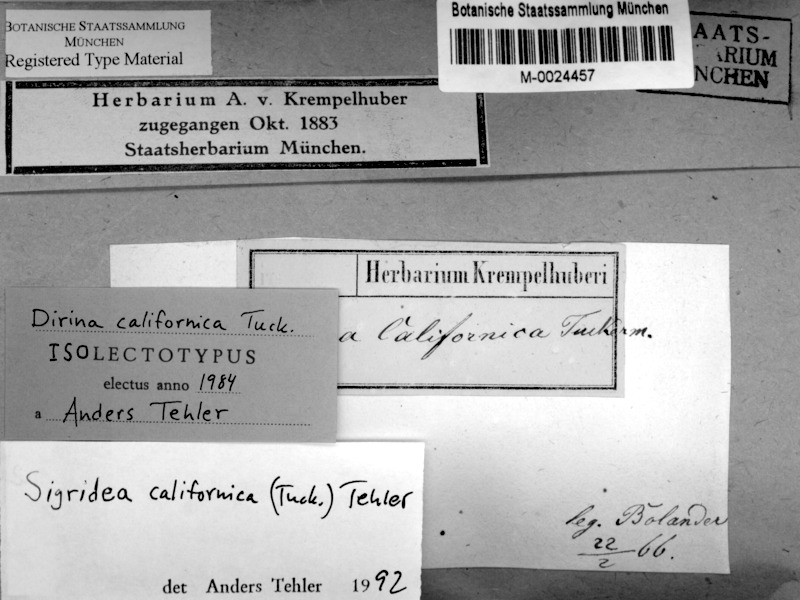 BOTANISCHE STAATSSAMMLUNG
MÜNCHEN
Registered Type Material
Botanische Staatssammlung München
M-0024457
AATS-
ARIUM
NCHEN
Herbarium A. v. Krempelhuber
zugegangen Okt. 1883
Staatsherbarium München.
Herbarium Krempelhuberi
a Californica Tuckerm.
Dirina californica Tuck.
ISOLECTOTYPUS
electus anno 1984
a Anders Tehler
Sigridea californica (Tuck.) Tehler
det Anders Tehler 1992
leg. Bolander
22/2 66.